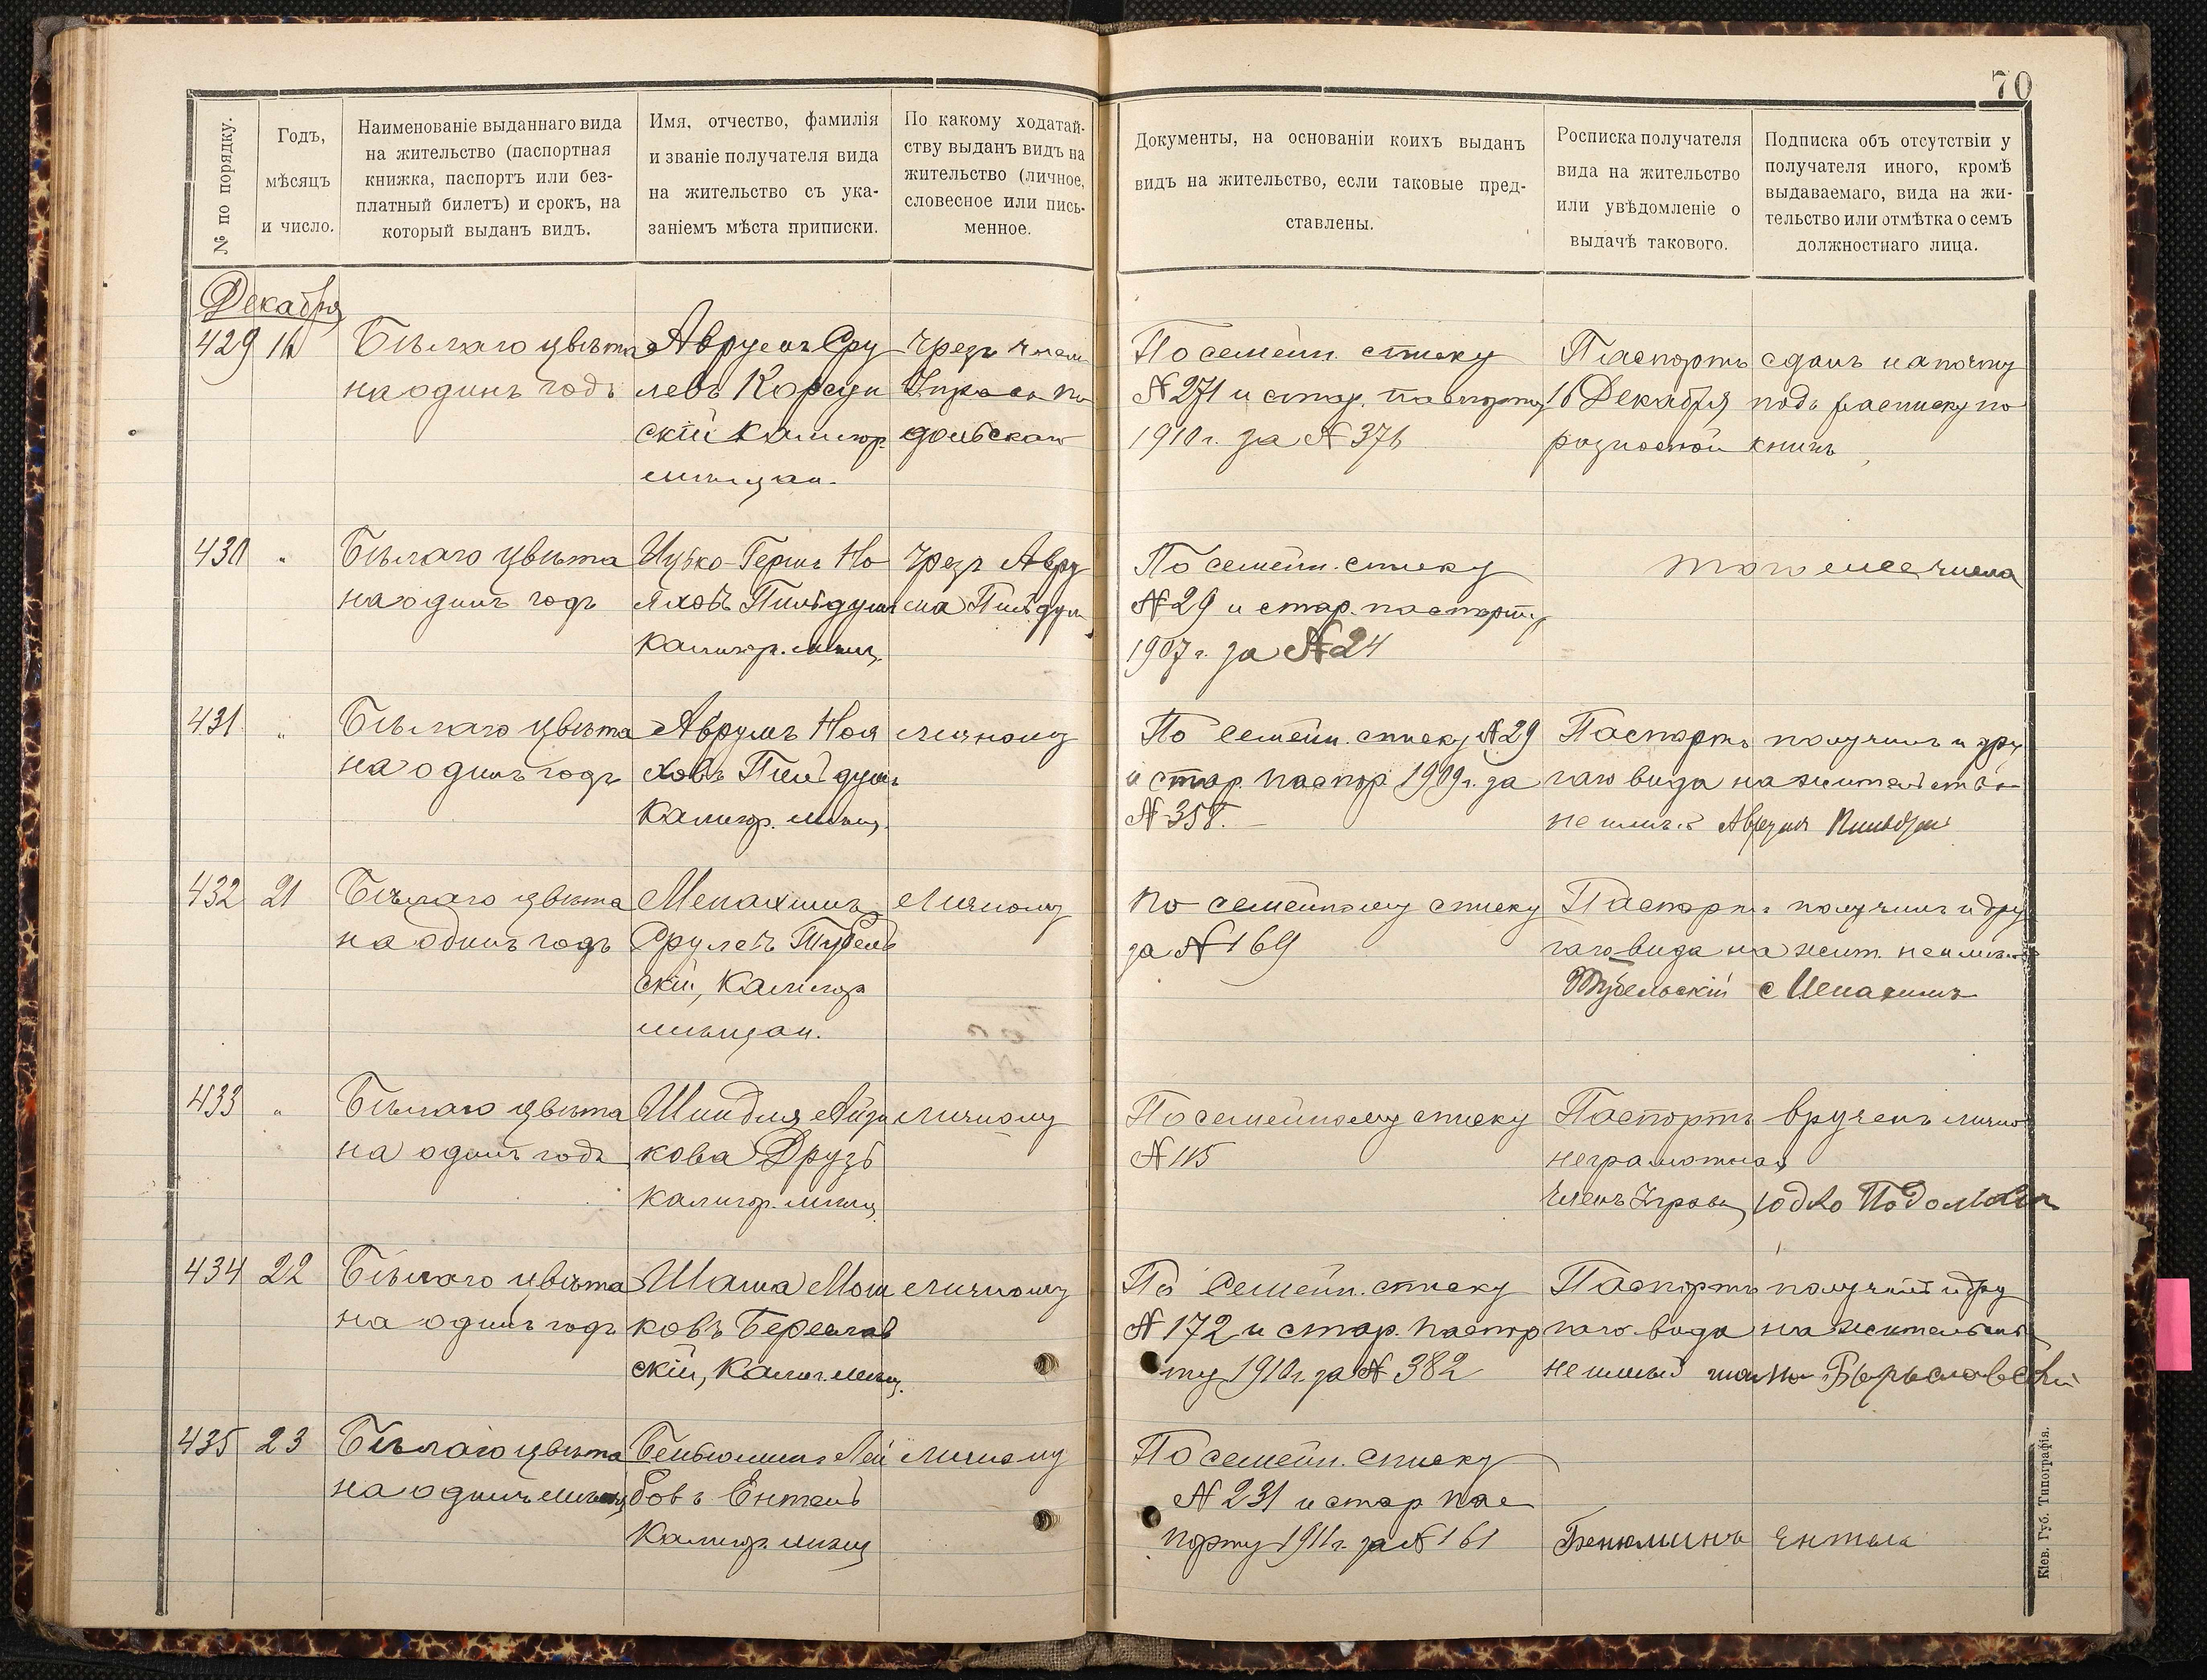 70
№ по порядку.
Годъ,
мѣсяцъ
и число.
Наименованіе выданнаго вида
на жительство (паспортная
книжка, паспортъ или без-
платный билетъ) и срокъ, на
который выданъ видъ.
Имя, отчество, фамилія
и званіе получателя вида
на жительство съ ука-
заніемъ мѣста приписки.
По какому ходатай-
ству выданъ видъ на
жительство (личное,
словесное или пись-
менное.
Документы, на основаніи коихъ выданъ
видъ на жительство, если таковые пред-
ставлены.
Росписка получателя
вида на жительство
или увѣдомленіе о
выдачѣ такового.
Подписка объ отсутствіи у
получателя иного, кромѣ
выдаваемаго, вида на жи-
тельство или отмѣтка о семъ
должностнаго лица.
Декабря
429 16
Бѣлаго цвѣта
на одинъ годъ
Аврумъ Сру
левъ Корсун
скій Калигор.
мѣщан.
чрезъ
По семейн. списку
N 271 и стар. паспорту
1910 г. за N 376
Паспортъ сданъ на почту
16 Декабря подъ расписку по
разносной книгѣ
430 "
Бѣлаго цвѣта
на одинъ годъ
Ицько-Гершъ Но
яховъ
Калигор. мѣщ.
чрезъ Авру
ма
По семейн. списку
N 29 и стар. паспорту
1907 г. за N 24
того же числа
431 "
Бѣлаго цвѣта
на одинъ годъ
Аврумъ Ноя
ховъ
Калигор. мѣщ.
личному
По семейн. списку N 29
и стар. паспор. 1909 г. за
N 358.
Паспортъ получилъ и дру
гаго вида на жительство
не имѣю Аврумъ
432 21
Бѣлаго цвѣта
на одинъ годъ
Менахимъ
Срулевъ Тубель
скій, Калигор
мѣщан.
личному
По семейному списку
за N 169
Паспортъ получилъ и дру
гаго вида на жит. не имѣю
Тубельскій Менахимъ
433 "
Бѣлаго цвѣта
на одинъ годъ
Шиндля Айзи
кова Друзь
Калигор. мѣщ.
личному
По семейному списку
N 115
Паспортъ врученъ лично
неграмотная
Членъ Управы Юдко
434 22
Бѣлаго цвѣта
на одинъ годъ
Шама Мош
ковъ Береслав
скій, Калиг. мѣщ.
личному
По семейн. списку
N 172 и стар. паспор
ту 1910 г. за N 382
Паспортъ получилъ и дру
гаго вида на жительство
435 23
Бѣлаго цвѣта
на одинъ мѣсяцъ
Беньюминъ Лей
бовъ Ентель
Калигор. мѣщ
личному
По семейн. списку
N 231 и стар. пас
порту 1911 г. за N 161
Бенюминъ Ентель
Кіев. Губ. Типографія.